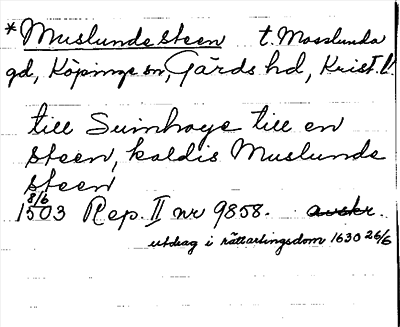 *Muslunde steen t. Mosslunda
gd, Köpinge sn, Gärds hd, Krist. l.
till Suinhoye till en
steen, kaldis Muslunde
steen
8/6
1503 Rep. II nr 9858. avskr.
utdrag i rättartingsdom 1630 26/6